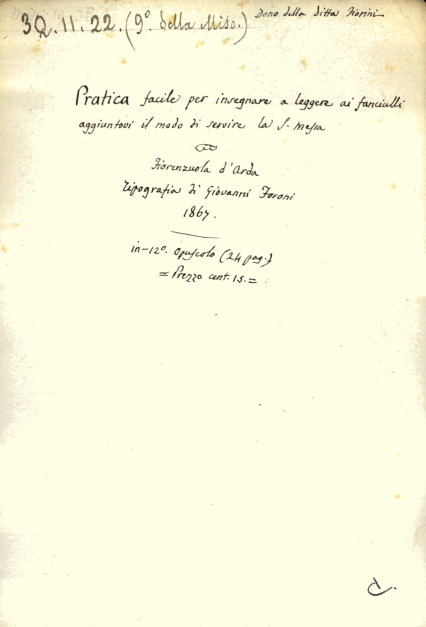 3Q.11.22.(9º. della Misc.)
Dono della ditta Fiorini
Pratica facile per insegnare a leggere ai fanciulli
aggiuntovi il modo di servire la S. Messa
Fiorenzuola d'Arda
Tipografia di Giovanni Foroni
1867.
in-12º. opuscolo (24 pag.)
= Prezzo cent. 15. =